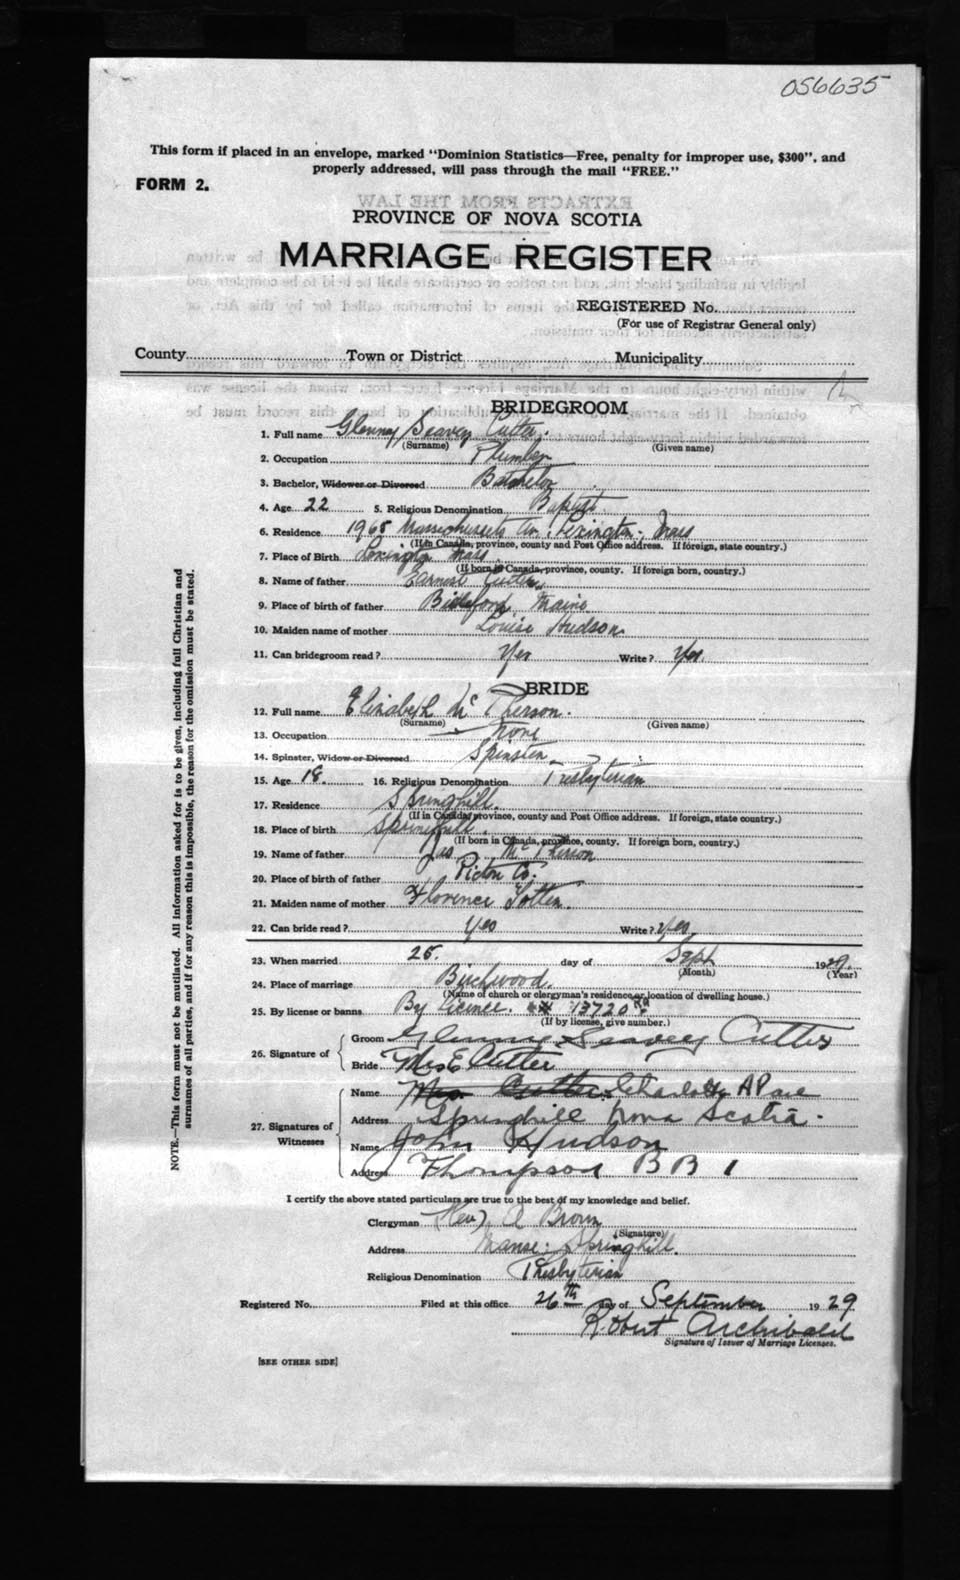 056635
This form if placed in an envelope, marked "Dominion Statistics—Free, penalty for improper use, $300", and
properly addressed, will pass through the mail "FREE."
FORM 2.
EXTRACTS FROM THE LAW
PROVINCE OF NOVA SCOTIA
MARRIAGE REGISTER
REGISTERED No.
(For use of Registrar General only)
County Town or District Municipality
BRIDEGROOM
1. Full name Glenny Seavey Cutter.
(Surname) (Given name)
2. Occupation Plumber
3. Bachelor, Widower or Divorced Batchelor
4. Age 22 5. Religious Denomination Baptist.
6. Residence 1965 Massachusetts Av. Lexington. Mass
(If in Canada, province, county and Post Office address. If foreign, state country.)
7. Place of Birth Lexington Mass.
(If born in Canada, province, county. If foreign born, country.)
8. Name of father Earnest Cutter
9. Place of birth of father Biddeford Maine
10. Maiden name of mother Louise Hudson
11. Can bridegroom read? Yes Write? Yes.
BRIDE
12. Full name Elizabeth McPherson.
(Surname) (Given name)
13. Occupation None
14. Spinster, Widow or Divorced Spinster
15. Age 18. 16. Religious Denomination Presbyterian
17. Residence Springhill.
(If in Canada, province, county and Post Office address. If foreign, state country.)
18. Place of birth Springhill.
(If born in Canada, province, county. If foreign born, country.)
19. Name of father Jas McPherson
20. Place of birth of father Picton Co.
21. Maiden name of mother Florence Totten.
22. Can bride read? Yes Write? Yes.
23. When married 26. day of Sept 1929.
(Month) (Year)
24. Place of marriage Birchwood.
(Name of church or clergyman's residence or location of dwelling house.)
25. By license or banns By licence. 13720
(If by license, give number.)
26. Signature of Groom Glenny Seavey Cutter
Bride Mrs E Cutter
27. Signatures of Witnesses Name Mrs. Cutter Charlotte A Pave
Address Springhill Nova Scotia.
Name John Hudson
Address Thompson BB 1
I certify the above stated particulars are true to the best of my knowledge and belief.
Clergyman (Rev) A Brown
(Signature)
Address Manse: Springhill.
Religious Denomination Presbyterian
Registered No. Filed at this office 26th day of September 1929
Robert Archibald
Signature of Issuer of Marriage Licenses.
[SEE OTHER SIDE]
NOTE.—This form must not be mutilated. All information asked for is to be given, including full Christian and
surnames of all parties, and if for any reason this is impossible, the reason for the omission must be stated.